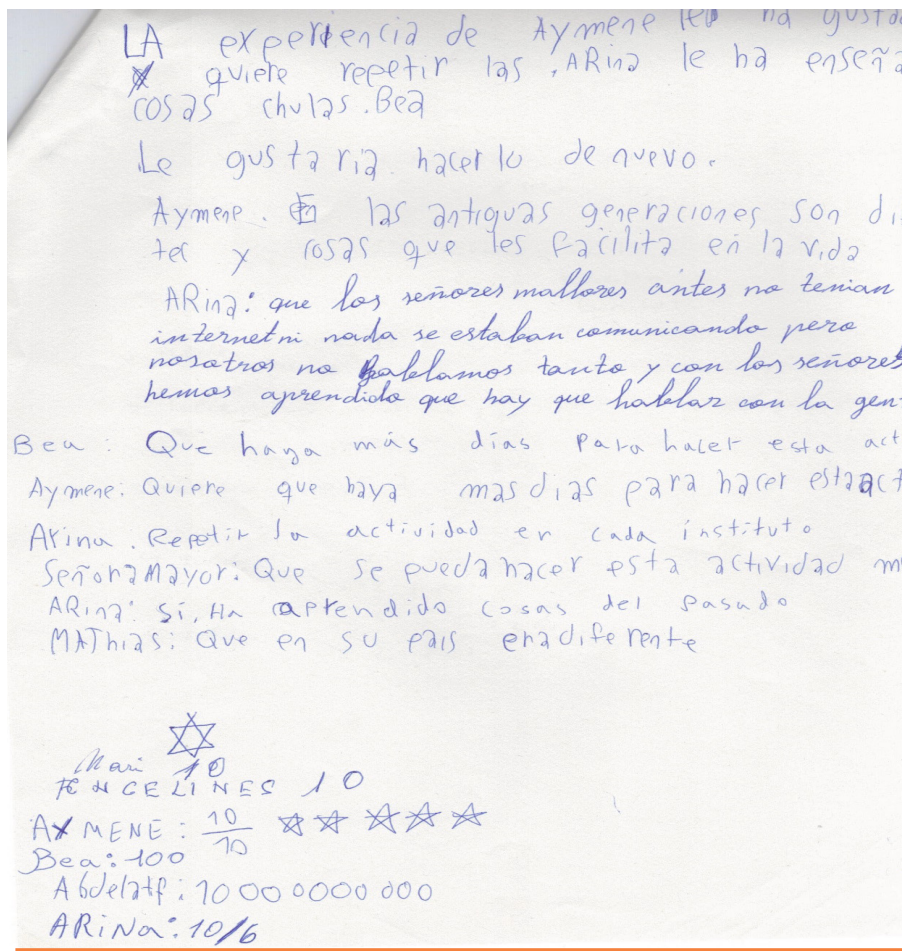 LA experiencia de Aymene les ha gusta
quiere repetir las . ARina le ha enseña
cosas chulas . Bea
Le gustaria hacerlo de nuevo .
Aymene . las antiguas generaciones son di
tes y cosas que les facilita en la vida
ARina: que los señores mallores antes no tenian
internet ni nada se estaban comunicando pero
nosotros no hablamos tanto y con los señores
hemos aprendido que hay que hablar con la gen
Bea : Que haya más días para hacer esta act
Aymene: Quiere que haya mas dias para hacer esta act
Arina . Repetir la actividad en cada instituto
Señora Mayor: Que se pueda hacer esta actividad m
ARina: Sí, Ha aprendido cosas del pasado
MAThias: Que en su pais era diferente
Mari 10
ENGELINES 10
AYMENE : 10/10
Bea: 100
Abdelatf : 10000000000
ARiNa: 10/6